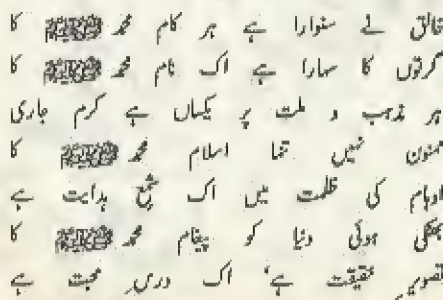 خالق نے سنوارا ہے ہر کام محمد ﷺ کا
گرتوں کا سہارا ہے اک نام محمد ﷺ کا
ہر مذہب و ملت پر یکساں ہے کرم جاری
ممنون نہیں تنہا اسلام محمد ﷺ کا
اوہام کی ظلمت میں اک شمع ہدایت ہے
بھٹکی ہوئی دنیا کو پیغام محمد ﷺ کا
تصویر حقیقت ہے، اک درس محبت ہے